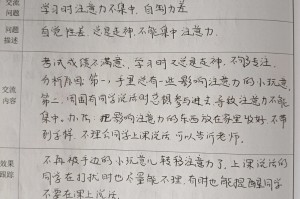 交流
问题
学习时注意力不集中,自制力差
问题
描述
自觉性差,还是走神,不能集中注意力.
交流
内容
考试成绩不满意,学习时不是走神,不够专注.
分析原因.第一,手里总有一些影响注意力的小玩意,
第二.周围有同学说话时总想参与进去,导致注意力不能
集中.办法:把影响注意力的东西放在家里收好.不带
到学样.不理会同学上课说话,可以告诉老师.
效果
跟踪
不再吸手边的小玩意儿转移注意力了.上课说话的
同学在打扰时也尽量能不理,有时也能提醒同学
不要在课上说话.